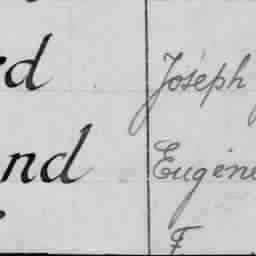 rd Joseph
nd Eugène
F